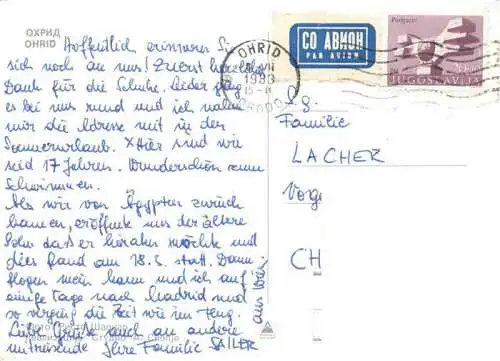 ОХРИД
OHRID
Hoffentlich erinnern Sie
sich noch an uns! Zuerst herzlichen
Dank für die Schuhe. Leider ging
es bei uns rund und ich nahm
mir die Adresse mit in den
Sommerurlaub. Hier sind wir
seid 17 Jahren. Wunderschön zum
Schwimmen.
Als wir von Ägypten zurück
kamen, eröffnete uns der ältere
Sohn das er heiraten möchte und
dies fand am 18.6. statt. Dann
flogen mein Mann und ich auf
einige Tage nach Madrid und
so verging die Zeit wie im Flug.
Liebe Grüße auch an andere
mitreisende Ihre Familie SAILER
aus Wien
СО АВИОН
PAR AVION
OHRID
VII
1983
Podgarić
JUGOSLAVIJA
S.g.
Familie
LACHER
Vorge
CH